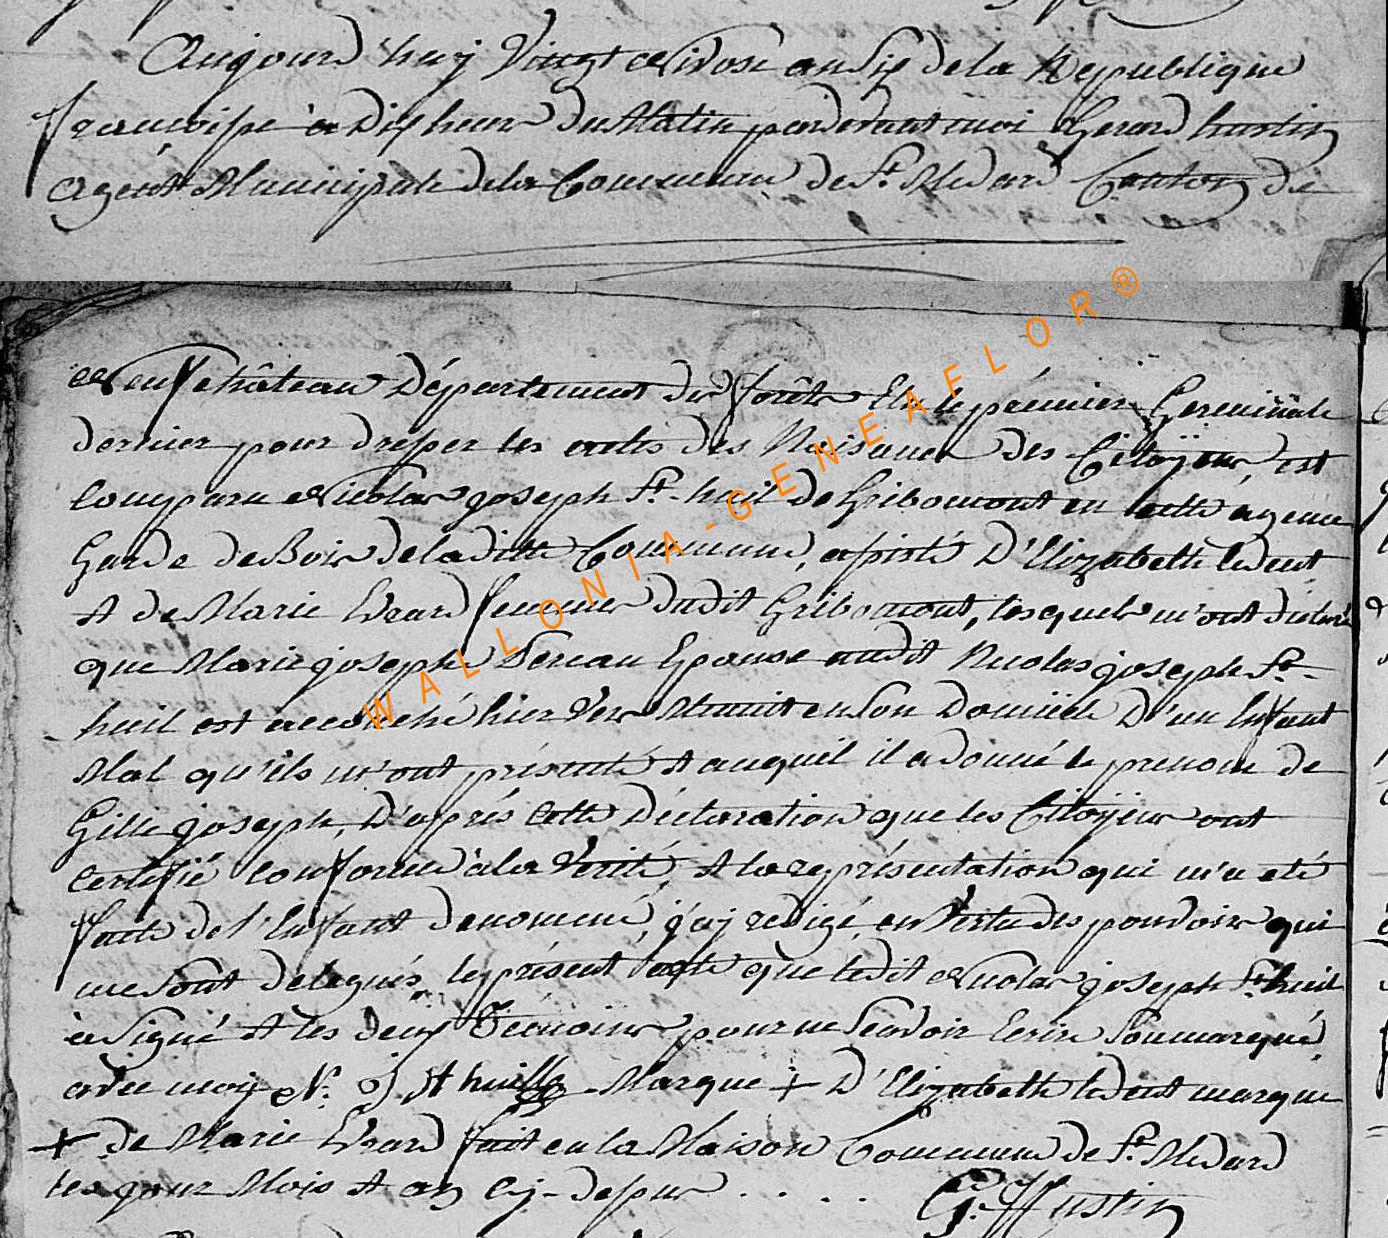 Aujourd'huy Vingt nivose an Six de la Republique
francoise à dix heure du Matin pardevant moi Gerard hustin
Agent Municipale de la Commune de St. Medard Canton de
neufchâteau Département du forêts Elu le prémier Germinale
dernier pour dresser les actes des Naisance des Citoÿens est
Comparu nicolas joseph St.-huil de Gribomont en cette agence
Garde de Bois de la ditte Commune, assisté D'Elizabette ledent
et de Marie Evrard femmes dudit Gribomont, lesquels m'ont déclaré
que Marie joseph Epouse audit Nicolas joseph St.-
huil est accouché hier Ver Minuit en Son Domicile D'un Enfant
Mal qu'ils m'ont présenté et auquel il a donné le prenom de
Gille joseph, D'après cette Déclaration que les Citoÿens ont
certifié Conforme à la Verité, et la représentation qui m'a eté
faite de l'Enfant denommé, j'aÿ redigé en Vertu des pouvoirs qui
me Sont delegués, le présent acte que ledit nicolas joseph St. huil
à Signé et les deux Témoins pour ne Scavoir Ecrire Son marqué
avec moy N. j St huille Marque + D'Elizabette ledent marque
+ de Marie Evrard fait en la Maison Commune de St. Medard
les jour Mois et an Cy-dessus . . . . G. Hustin